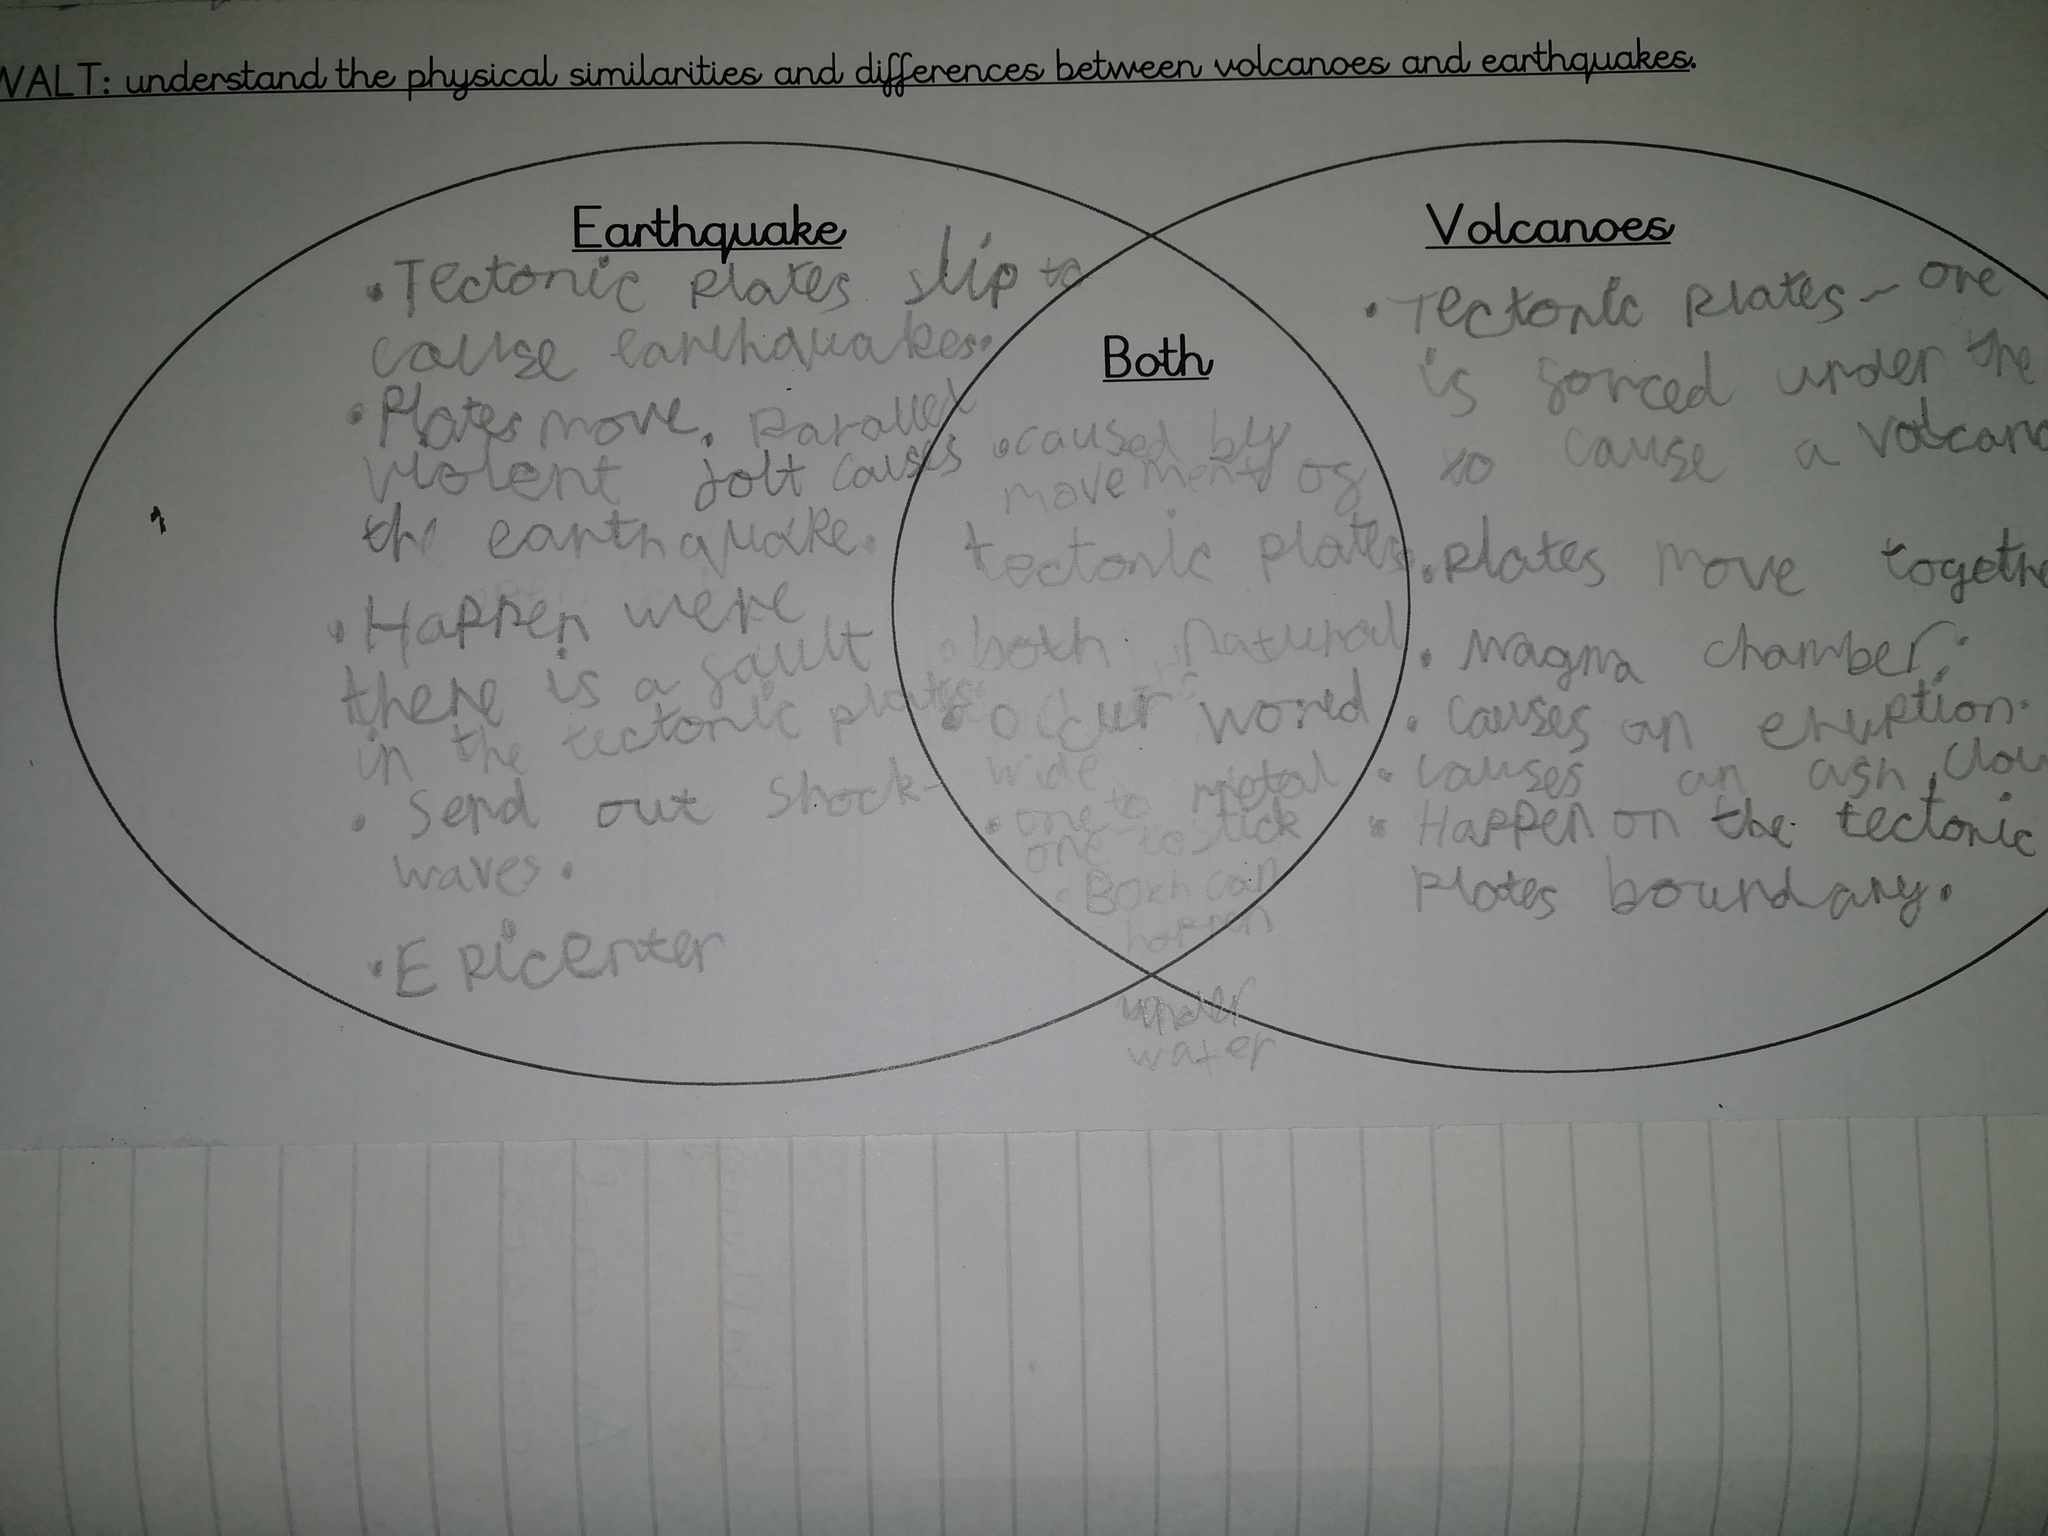 WALT: understand the physical similarities and differences between volcanoes and earthquakes.
Earthquake
• Tectonic plates slip to
cause earthquakes.
• Plates move. Parallel
violent jolt causes
the earthquake.
• Happen were
there is a fault
in the tectonic plates
• Send out shock-
waves.
• Epicenter
Both
• caused by
movement of
tectonic plates
• both natural
• occur world
wide
one to
one to stick
• Both can
happen
under
water
Volcanoes
• Tectonic plates - one
is forced under the
to cause a volcano
• plates move together
• Magma chamber.
• causes an eruption.
• causes an ash clou
• Happen on the tectonic
plates boundary.